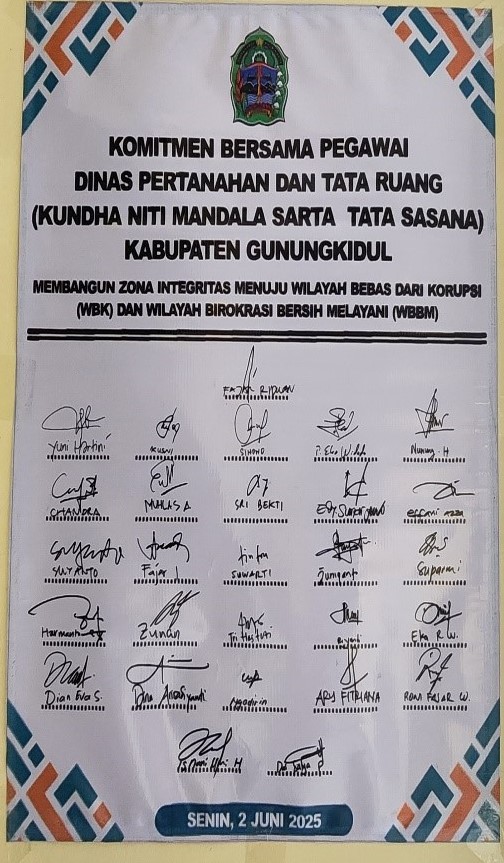 KOMITMEN BERSAMA PEGAWAI
DINAS PERTANAHAN DAN TATA RUANG
(KUNDHA NITI MANDALA SARTA TATA SASANA)
KABUPATEN GUNUNGKIDUL
MEMBANGUN ZONA INTEGRITAS MENUJU WILAYAH BEBAS DARI KORUPSI
(WBK) DAN WILAYAH BIROKRASI BERSIH MELAYANI (WBBM)
FAJAR RIDWAN
Yuni Hartini KUSNI SIHONO Nunung. H
CHANDRA MUHLAS A SRI BEKTI
SUYANTO Fajar I SUWARTI Jumgant Suparmi
Zunan Tri Hastuti Eka R.W.
Dian Eva S. Ngadirin ARY FITRIANA RONI FAJAR W.
SENIN, 2 JUNI 2025